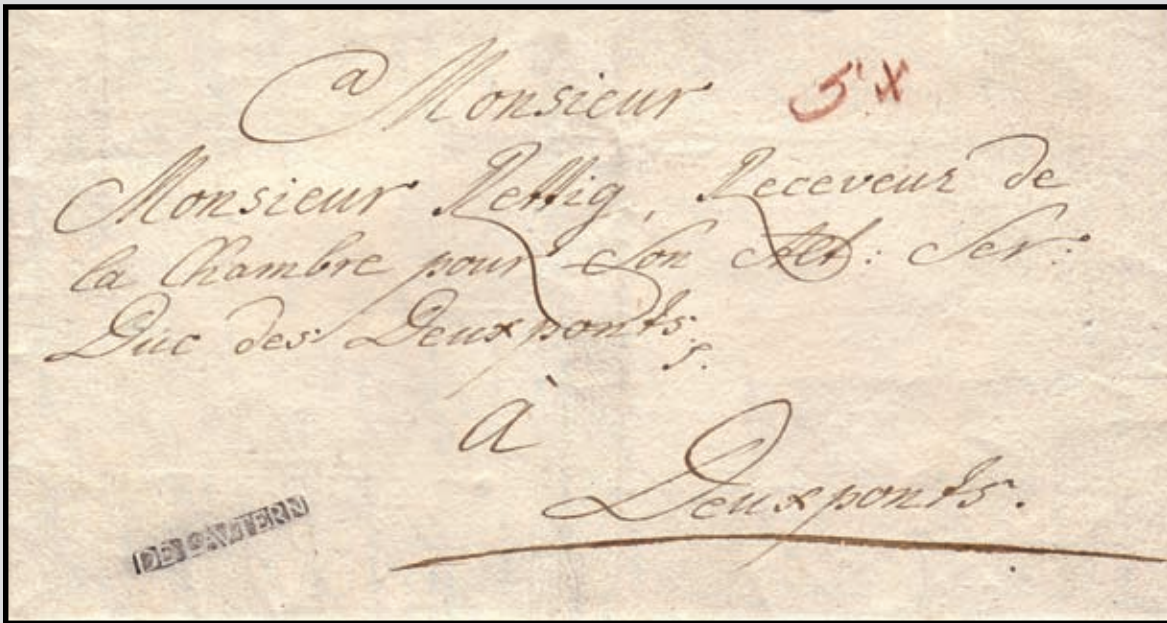 a Monsieur 5 x
Monsieur Rettig, Receveur de
la Chambre pour Son Alt: Ser:
Duc des Deuxponts.
s.
à
Deuxponts.